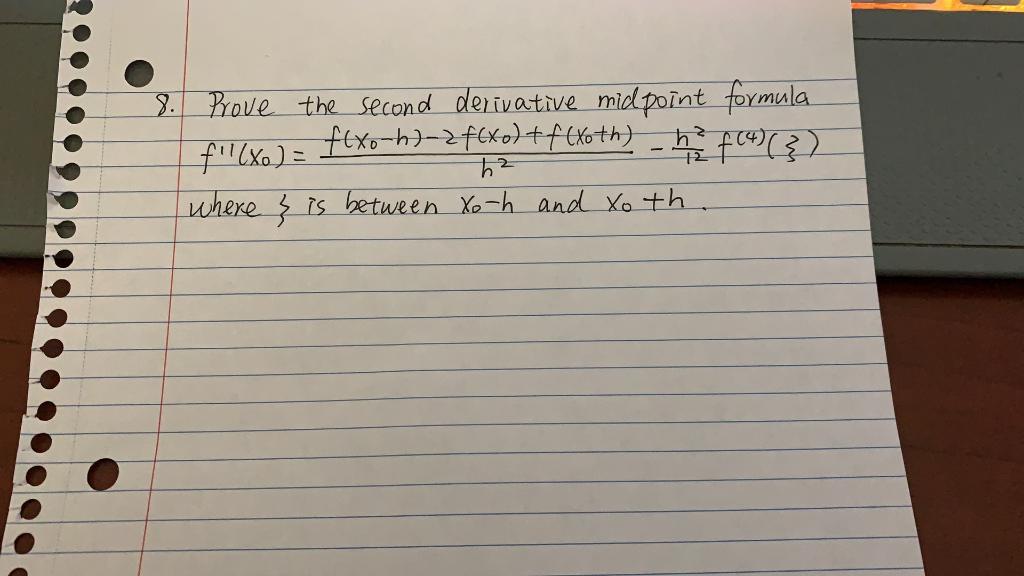 8. Prove the second derivative midpoint formula
f''(x₀) = \frac{f(x₀-h)-2f(x₀)+f(x₀+h)}{h²} - \frac{h²}{12} f⁽⁴⁾(ξ)
where ξ is between x₀-h and x₀+h.